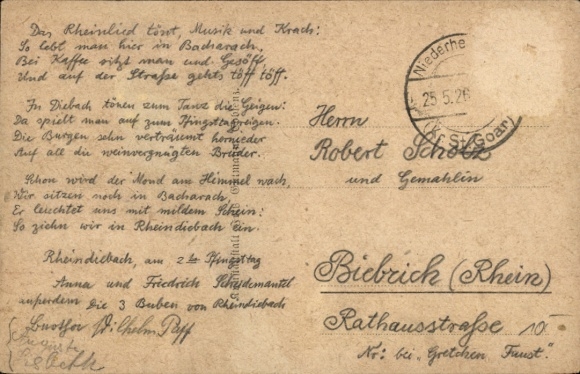 Das Rheinlied tönt, Musik und Krach:
So lebt man hier in Bacharach.
Bei Kaffee sitzt man und Gesöff
Und auf der Straße gehts töff töff.
In Diebach tönen zum Tanz die Geigen:
Da spielt man auf zum Pfingstreigen.
Die Burgen sehn verträumt hernieder
Auf all die weinvergnügten Brüder.
Schon wird der Mond am Himmel wach,
Wir sitzen noch in Bacharach,
Er leuchtet uns mit mildem Schein:
So ziehn wir in Rheindiebach ein.
Rheindiebach, am 2ten Pfingsttag
Anna und Friedrich Scheidemantel
außerdem die 3 Buben von Rheindiebach
Wilhelm
Niederhe
25.5.26
Kr. St. Goar
Herrn
Robert Scholz
und Gemahlin
Biebrich (Rhein)
Rathausstraße 10
Nr: bei "Gretchen Faust".